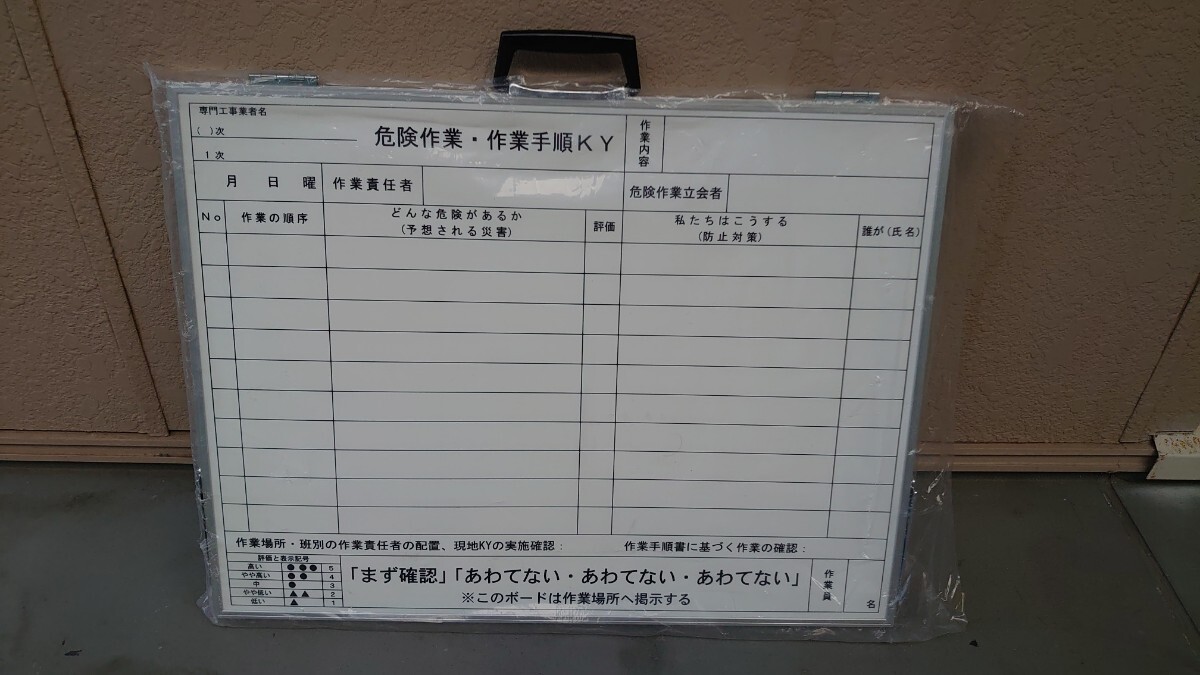 専門工事業者名
( )次
1 次
危険作業・作業手順KY
作業内容
月 日 曜
作業責任者
危険作業立会者
No
作業の順序
どんな危険があるか
(予想される災害)
評価
私たちはこうする
(防止対策)
誰が(氏名)
作業場所・班別の作業責任者の配置、現地KYの実施確認:
作業手順書に基づく作業の確認:
評価と表示記号
高い ●●● 5
やや高い ●● 4
中 ● 3
やや低い ▲▲ 2
低い ▲ 1
「まず確認」「あわてない・あわてない・あわてない」
※このボードは作業場所へ掲示する
作業員
名